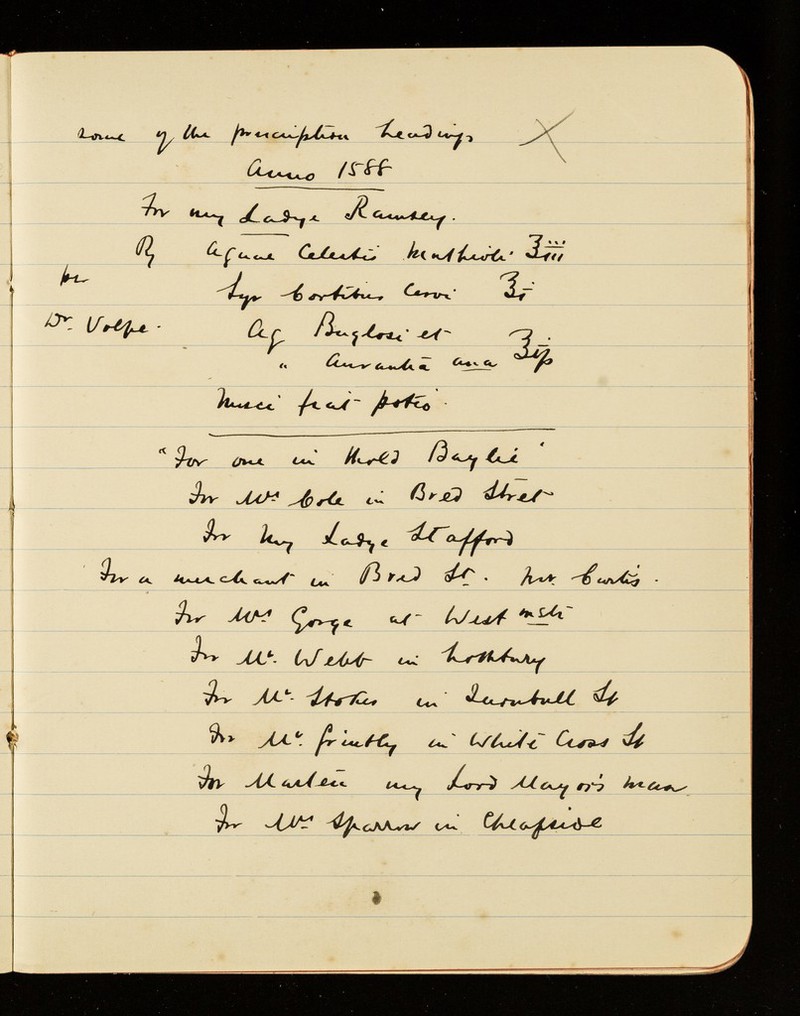 some of the prescription headings X
Anno 1588
For my Ladye Ramsey.
℞ Aquae Celestis Mathioli ʒiii
per
Syr Corticus Cervi ʒi
Dr. Volpe.
Aq Buglosi et
" Aurantiā ana ʒiβ
Misce fiat potio.
"For one in thold Baylie"
For Mrs Cole in Bred Stret
For my Ladye Stafford
For a merchant in Bred St. Mr. Curtis.
For Mrs Gorge at Westmstr
For Mr. Webb in Lothbury
For Mr. Stokes in Turnbull St
For Mr. Grimbly in White Cross St
For Marten my Lord Mayor's man
For Mrs Sparrow in Cheapside